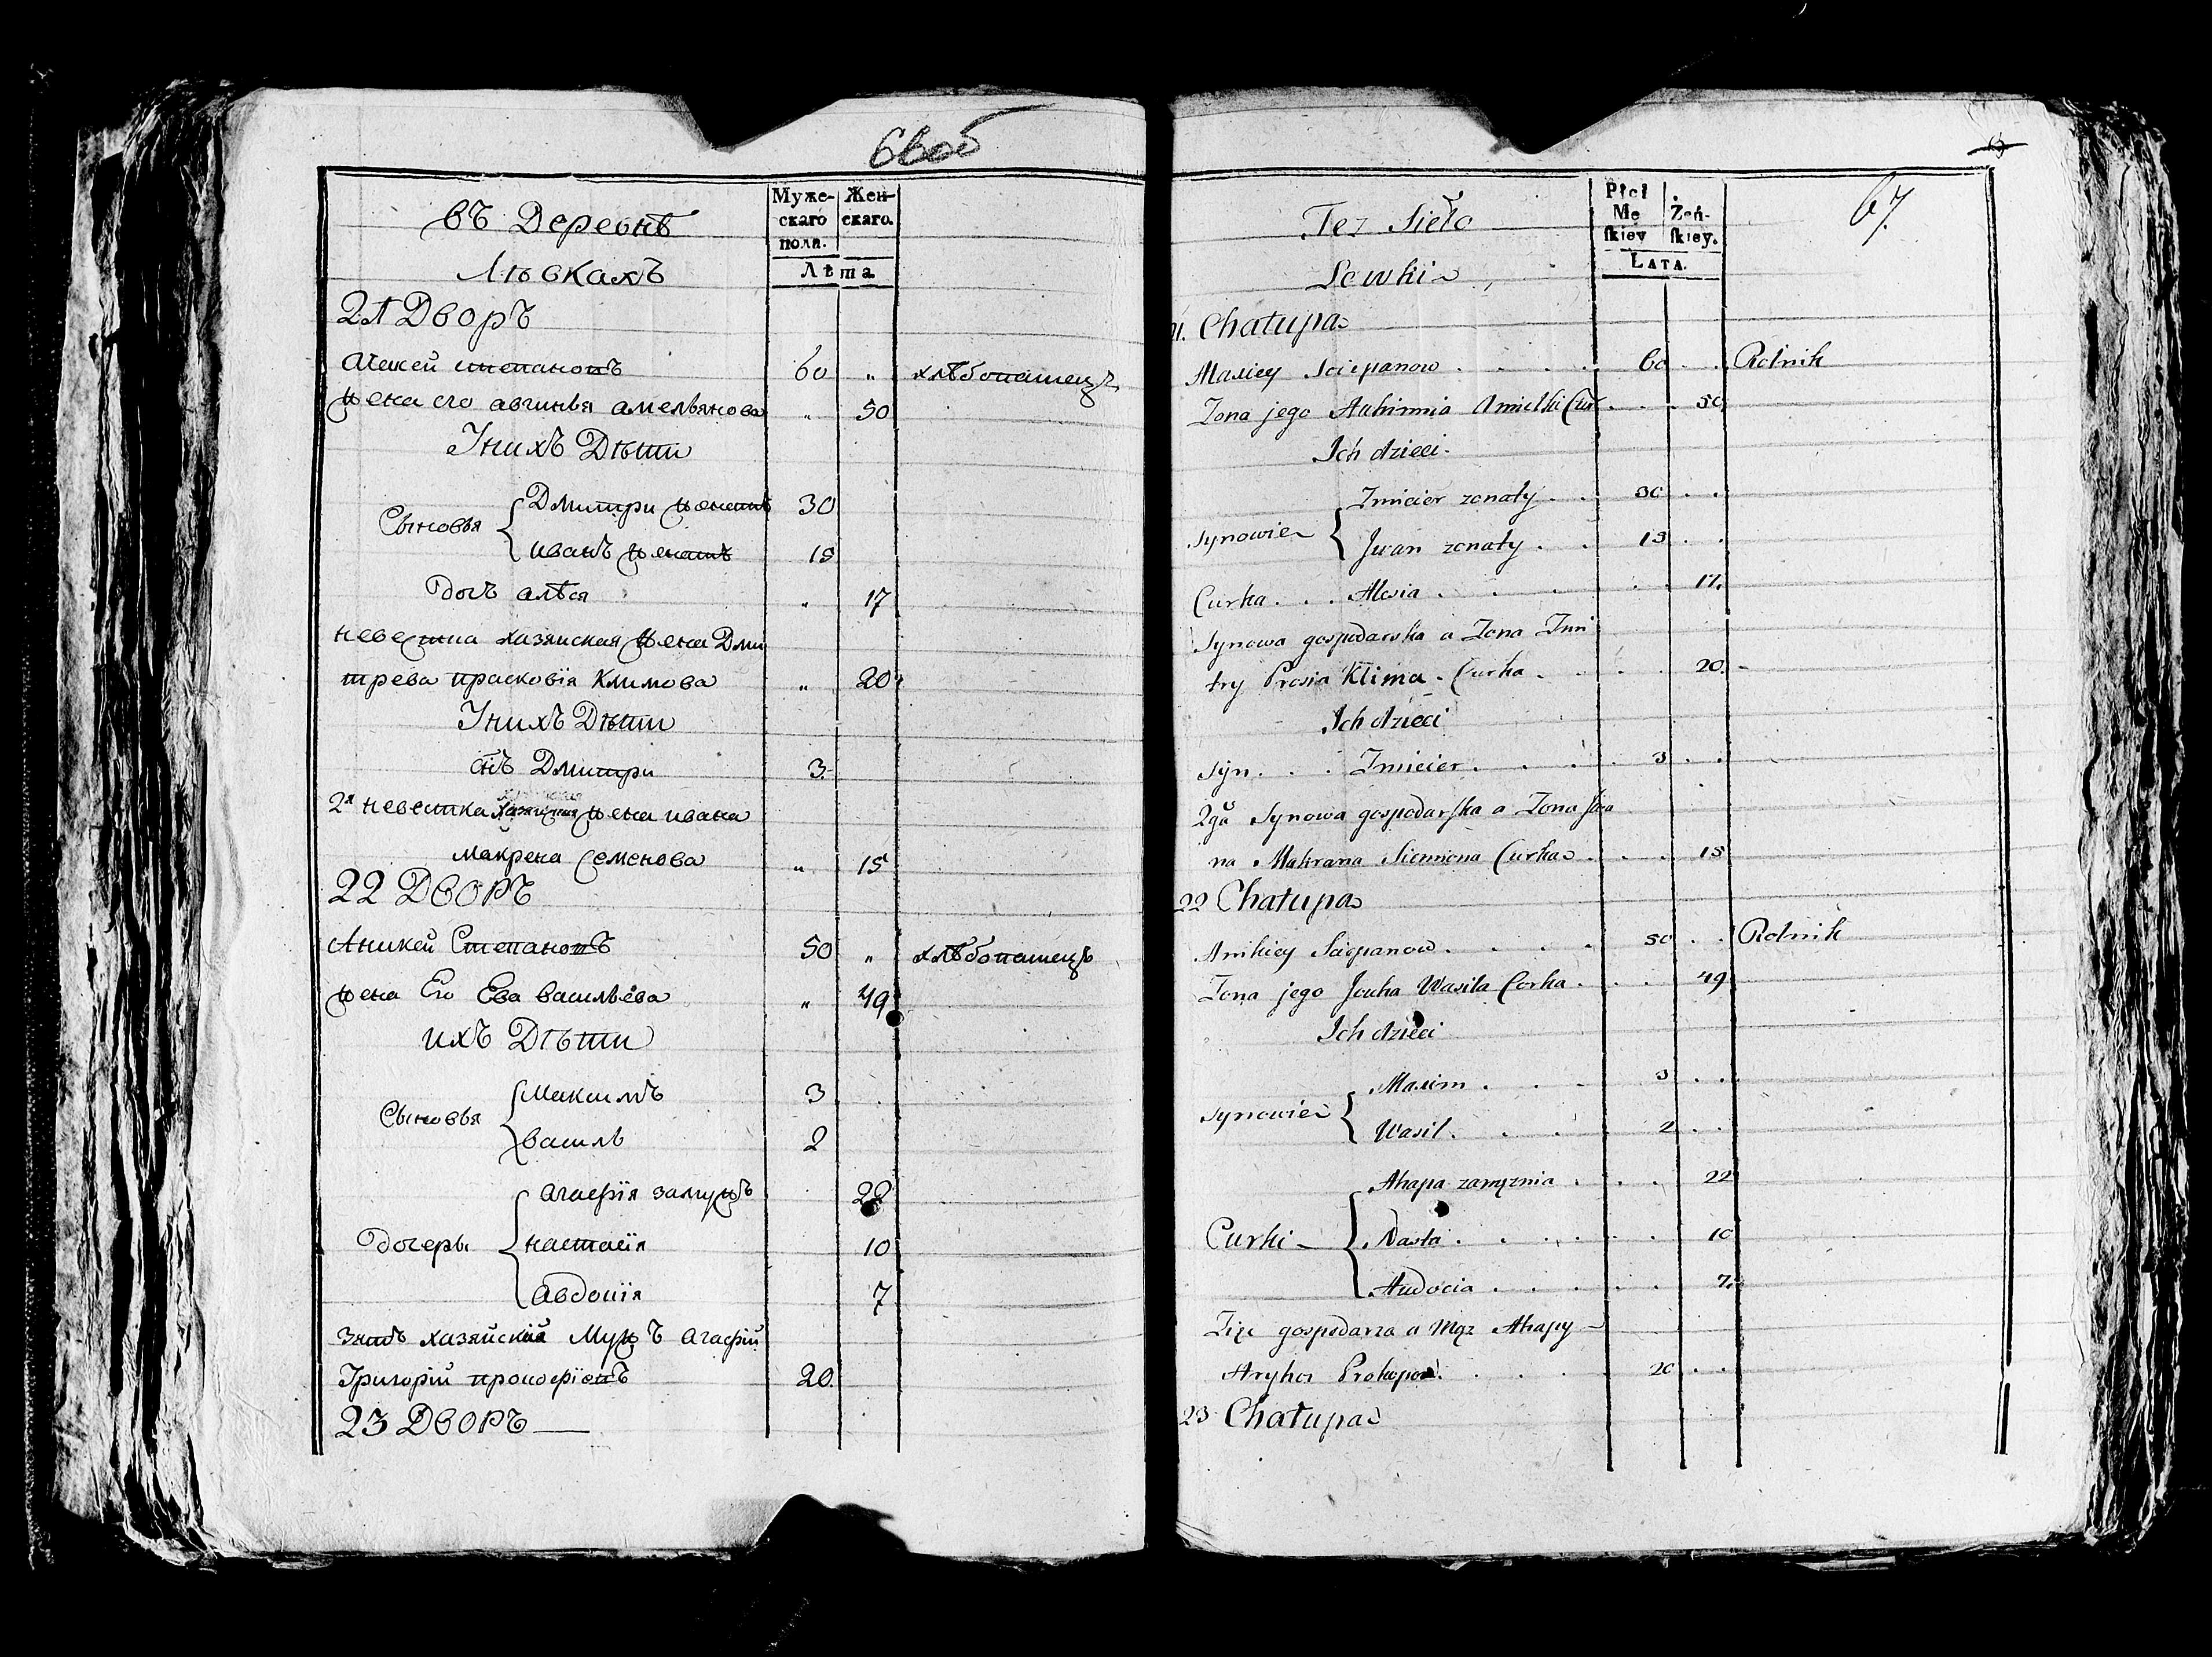 66об
въ Деревнѣ
Лѣвкахъ
Муже-
скаго
полп.
Жен-
скаго.
Лѣта
21 Дворъ
степановъ 60 „ хлѣбопашецъ
жена его авгинья амельянова „ 50
У нихъ Дѣти
Сыновья
Дмитри женатъ 30
иванъ женатъ 18
дочъ алѣся „ 17
невестка хазяиская жена Дми
трева прасковія Климова „ 20
У нихъ Дѣти
снъ Дмитри 3
2я невестка хазяиская жена ивана
макрена Семенова „ 15
22 Дворъ
Аникей Степановъ 50 „ хлѣбопашецъ
жена Его Ева васильева „ 49
ихъ Дѣти
Сыновья
Максимъ 3
василь 2
дочеры
агафія замужъ 22
настасія 10
авдоція 7
зять хазяйскій Мужъ агафіи
Григорій прокофіевъ 20
23 Дворъ
67.
Tez Sieło
Lewki
Płci
Mę
skiey
Żeń-
skiey.
LATA.
21. Chałupa
Maxiey Sciepanow 60 Rolnik
Zona jego Auhinnia Amielki Cur 50
Ich dzieci
Synowie
Zmicier zonaty 30
Jwan zonaty 18
Curka Alesia 17.
Synowa gospodarska a Zona Zmi
try Prosia Klima Curka 20.
Ich dzieci
Syn Zmicier 3
2ga Synowa gospodarska a Zona Jwa
na Makrana Siemiona Curka 15
22 Chałupa
Anikiey Sciepanow 50 Rolnik
Zona jego Jeuka Wasila Corka 49
Ich dzieci
Synowie
Maxim 3
Wasil 2
Curki
Ahapa zamęznia 22
Nasta 10
Audocia 7.
Zięc gospodarza a Mąz Ahapy
Aryhor Prokopow 20
23 Chałupa